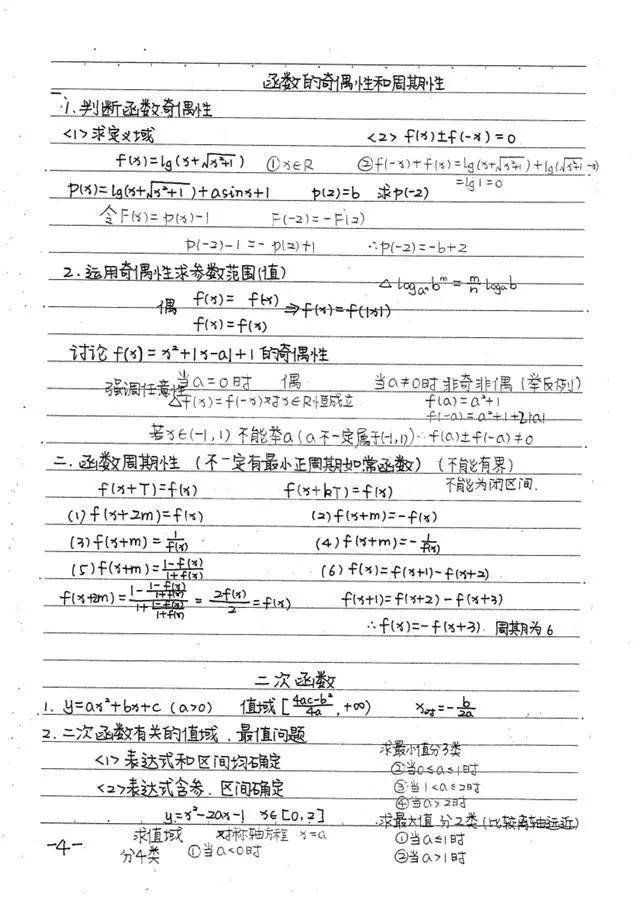 函数的奇偶性和周期性
1.判断函数奇偶性
<1>求定义域 <2> f(x)±f(-x)=0
f(x)=lg(x+√x²+1) ①x∈R ②f(-x)+f(x)=lg(x+√x²+1)+lg(√x²+1-x)
=lg1=0
p(x)=lg(x+√x²+1)+asinx+1 p(2)=b 求p(-2)
令F(x)=p(x)-1 F(-2)=-F(2)
p(-2)-1=-p(2)+1 ∴p(-2)=-b+2
2.运用奇偶性求参数范围(值)
△ logₐₙbᵐ=m/n logₐb
偶 f(x)=f(-x) ⇒f(x)=f(|x|)
f(x)=f(x)
讨论f(x)=x²+|x-a|+1的奇偶性
当a=0时 偶 当a≠0时 非奇非偶(举反例)
强调任意性 △f(x)=f(-x)对x∈R恒成立 f(a)=a²+1
f(-a)=a²+1+2|a|
若x∈(-1,1) 不能举a(a不一定属于(-1,1)) ∴f(a)±f(-a)≠0
二.函数周期性(不一定有最小正周期如常函数)(不能有界)
f(x+T)=f(x) f(x+kT)=f(x) 不能为闭区间.
(1)f(x+2m)=f(x) (2)f(x+m)=-f(x)
(3)f(x+m)=1/f(x) (4)f(x+m)=-1/f(x)
(5)f(x+m)=1-f(x)/1+f(x) (6)f(x)=f(x+1)-f(x+2)
f(x+2m)=(1-(1-f(x))/(1+f(x)))/(1+(1-f(x))/(1+f(x)))=2f(x)/2=f(x) f(x+1)=f(x+2)-f(x+3)
∴f(x)=-f(x+3) 周期为6
二次函数
1. y=ax²+bx+c (a>0) 值域[4ac-b²/4a,+∞) x对=-b/2a
2.二次函数有关的值域、最值问题
<1>表达式和区间均确定
<2>表达式含参.区间确定
y=x²-2ax-1 x∈[0,2]
求值域 对称轴方程 x=a
分4类 ①当a<0时
求最小值分3类
②当0≤a≤1时
③当1<a≤2时
④当a>2时
求最大值 分2类(比较离轴远近)
①当a≤1时
②当a>1时
-4-